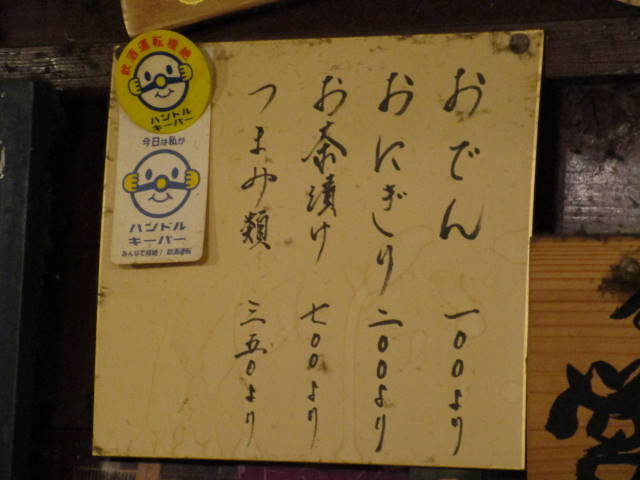 おでん 一〇〇より
おにぎり 二〇〇より
お茶漬け 七〇〇より
つまみ類 三五〇より
飲酒運転根絶
ハンドル
キーパー
今日は私が
ハンドル
キーパー
みんなで根絶!飲酒運転